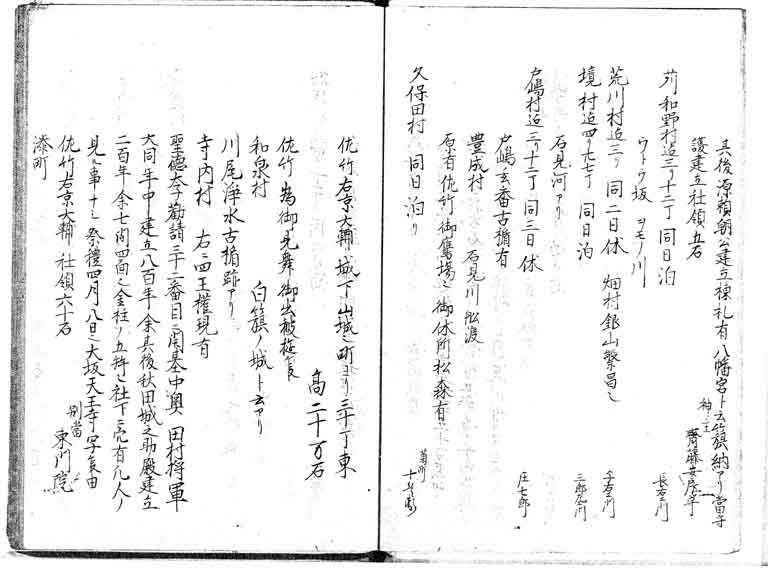 其後源頼朝公建立棟札有八幡宮ト云簱納アリ當寺
護建立社領五石
神主 齋藤
苅和野村迄三リ十二丁 同日泊 長左衛門
ウトウ坂 ヲモノ川
荒川村迄三リ 同二日休 畑村銀山繁昌之
境村迄四リ 同日泊
石見河アリ
戸嶋村迄三リ十二丁 同三日休 庄七郎
戸嶋玄番古楯有
豊成村 石見川舩渡
原有佐竹御鷹場之御休所松森有
久保田村 同日泊リ
佐竹右京大輔城下山城之町ヨリ三十丁東
高二十万石
佐竹為御見舞御出被遊
和泉村 白簱ノ城ト云アリ
川尾浄水古楯跡アリ
寺内村 右ニ四王權現有
聖德太子勸請三十三番目之開基中興田村将軍
大同年中ニ建立八百年余其後秋田城之助殿建立
二百年余七間四面之金柱ノ五
見ル事ナシ祭禮四月八日之大坂天王寺写
佐竹右京大輔社領六十石
別當 東門院
湊町